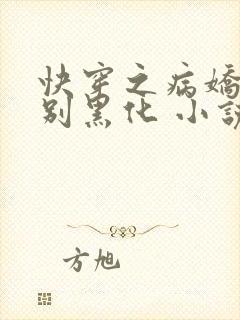 快穿之病嬌
别黑化 小說
方旭